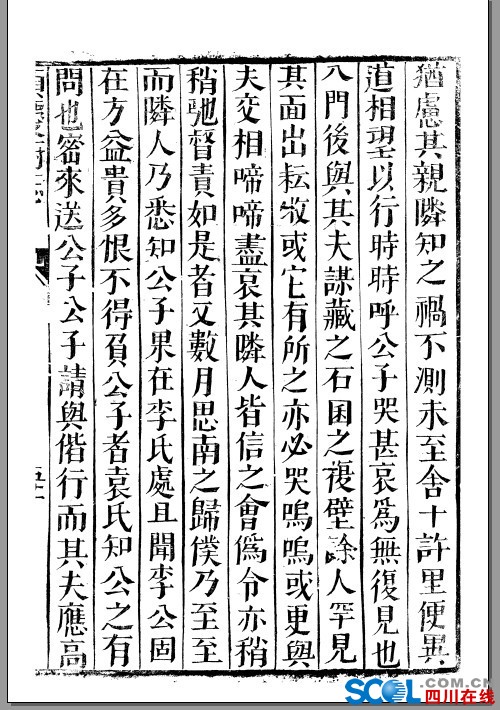 猶慮其親隣知之禍不測未至舍十許里便異
道相望以行時時呼公子哭甚哀爲無復見也
入門後與其夫謀藏之石囷之複壁餘人罕見
其面出耘收或它有所之亦必哭嗚嗚或更與
夫交相啼啼盡哀其隣人皆信之會僞令亦稍
稍馳督責如是者又數月思南之歸僕乃至至
而隣人乃悉知公子果在李氏處且聞李公固
在方益貴多恨不得負公子者袁氏知公之有
問也密來送公子公子請與偕行而其夫應高
SCOL.COM.CN
四川在线